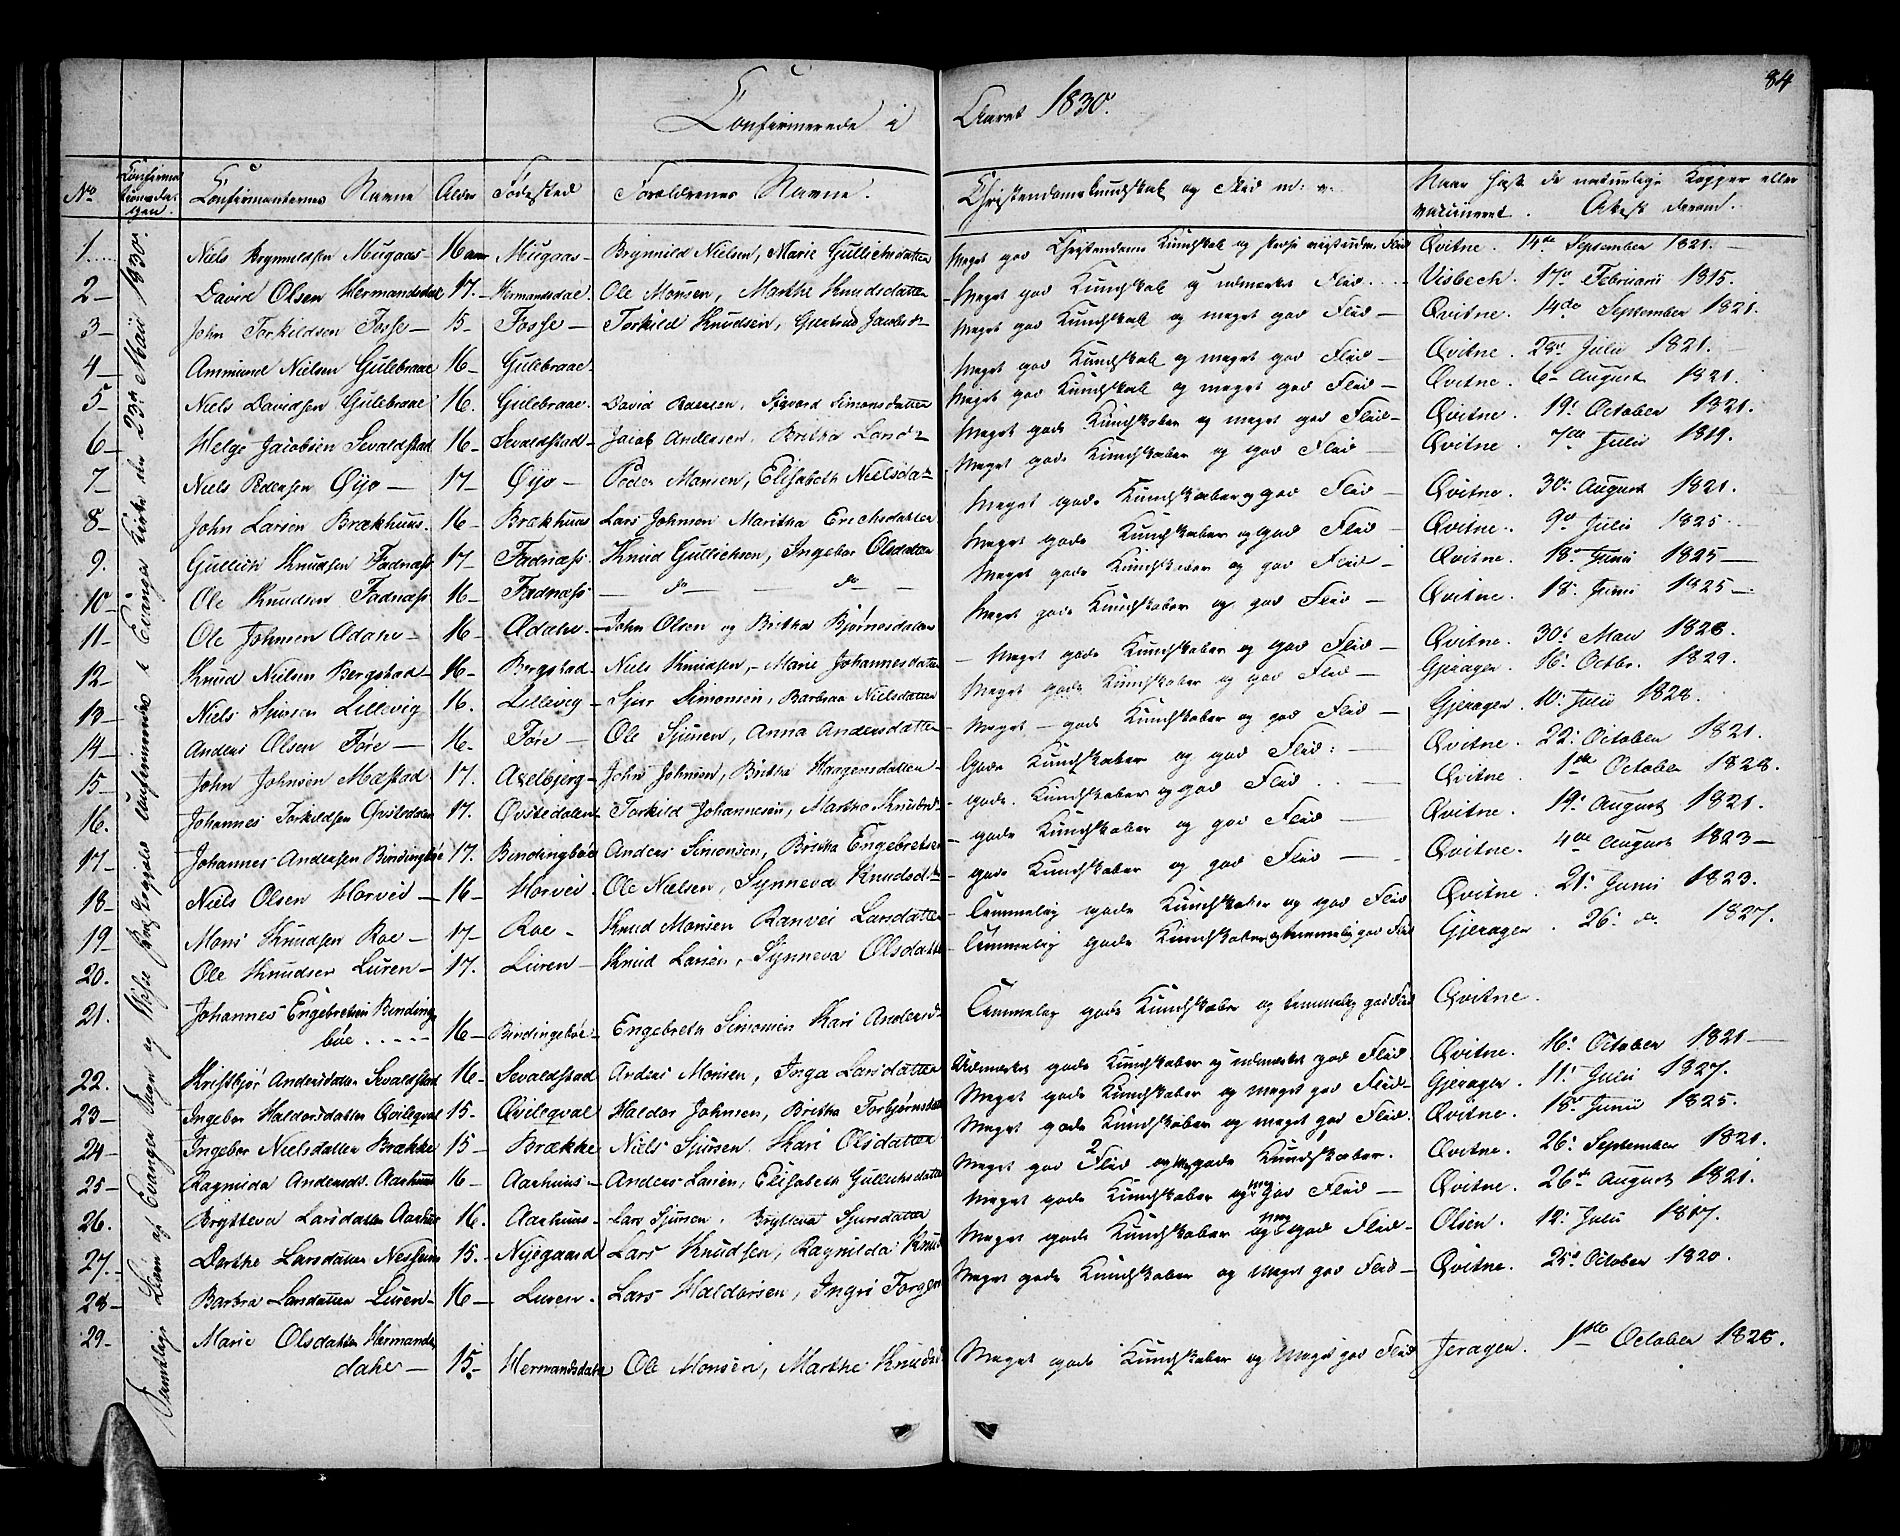 84
Confirmerede i Aaret 1830.
No Confirmationsdagen. Confirmanternes Navne Alder Fødested Forældrenes Navne. Christendomskundskab og Flid m: v. Naar havt de naturlige Kopper eller vaccineret. Attest derom.
1. Niels Brynnildsen Mugaas 16 aar Mugaas Brynnild Nielsen, Marie Gullichsdatter Meget god Christendoms Kundskab og Flid Qvitne. 14de September 1821.
2 David Olsen Hermandsdal 17. Hermandsdal. Ole Monsen, Marthe Knudsdatter Meget god Kundskab og udmærket Flid. Visbech. 17de Februarii 1815.
3 John Torkildsen Fosse 15 Fosse Torkild Knudsen, Gjertrud Jacobsd: Meget god Kundskab og meget god Flid Qvitne. 14de September 1821.
4 Ammund Nielsen Gulebraae 16 Gulebraae. Meget god Kundskab og meget god Flid Qvitne. 28de Julii 1821.
5 Niels Davidsen Gulebraae 16. Gulebraae. David Simonsdatter Meget god Kundskab og meget god Flid Qvitne. 6 August 1821.
6 Helge Jacobsen Sevaldstad 16 Sevaldstad Jacob Andersen, Britha Larsd: Meget gode Kundskaber og meget god Flid Qvitne. 19: October 1821.
7 Niels Pedersen Øijo 17 Øijo Peder Monsen, Elisabeth Nielsda: Meget gode Kundskaber og god Flid Qvitne. 7de Julii 1819.
8 John Larsen Brækhuus. 16 Brækhuus Lars Johnsen Maritha Erichsdatter Meget gode Kundskaber og god Flid Qvitne. 30: August 1821.
9. Gullich Knudsen Fadnæss 17 Fadnæss. Knud Gullichsen, Ingebor Olsdatter Meget gode Kundskaber og god Flid Qvitne. 9de Julii 1825.
10 Ole Knudsen Fadnæss 16 Fadnæss do do Meget gode Kundskaber og god Flid Qvitne. 18de Junii 1825
11 Ole Johnsen Ødahe 16 Ødahe. John Olsen og Britha Bjørnesdatter Meget gode Kundskaber og god Flid Qvitne. 18: Junii 1825
12 Knud Nielsen Bergstad 16 Bergstad Niels Knudsen, Marie Johannesdatter Meget gode Kundskaber og god Flid Qvitne. 30: Maii 1828.
13 Niels Sjursen Lillevig 16. Lillevig Sjur Simonsen, Barbraa Nielsdatter Meget gode Kundskaber og god Flid Gjerager. 16: Octbr. 1829.
14 Anders Olsen Føre 16. Føre Ole Sjursen, Anna Andersdatter Meget gode Kundskaber og god Flid Gjerager. 10: Julii 1828.
15 John Johnsen Mæstad 17. Axelbjerg John Johnsen, Britha Haagensdatter Gode Kundskaber og god Flid: Qvitne. 22: October 1821.
16. Johannes Torkildsen Qvitedalen 17. Qvitedalen Torkild Johannesen, Martha Knudsd: gode Kundskaber og god Flid Qvitne. 1de October 1828.
17 Johannes Andersen Bindingbøe 17. Bindingbøe Anders Simonsen, Britha Engebretsen gode Kundskaber og god Flid Qvitne. 19: August 1821.
18 Niels Olsen Horvei 16 Horvei. Ole Nielsen, Synneva Knudsd: gode Kundskaber og god Flid Qvitne. 4de August 1823
19 Mons Knudsen Roe 17 Roe Knud Monsen Ranvei Larsdatter Temmelig gode Kundskaber og god Flid Qvitne. 21: Junii 1823.
20. Ole Knudsen Luren 17. Luren Knud Larsen, Synneva Olsdatter Temmelig gode Kundskaber og temmelig god Flid Gjerager. 26: do 1827.
21. Johannes Engebretsen Binding
bøe..... 16 Bindingebøe Engebreth Simonsen Kari Andersd: Temmelig gode Kundskaber og temmelig god Flid Qvitne.
22. Kristbjør Andersdatter Sevaldstad 16 Sevaldstad Anders Monsen, Inga Larsdatter Udmærket gode Kundskaber og udmærket god Flid. Qvitne. 16: October 1821
23 Ingebor Haldorsdatter Qvileqval 15. Qvileqval Haldor Johnsen, Britha Torbjørnsdatter Meget gode Kundskaber og meget god Flid Gjerager. 11: Julii 1827.
24 Ingebor Nielsdatter Brække 15 Brække Niels Sjursen. Kari Olsdatter Meget gode Kundskaber og meget god Flid. Qvitne. 18de Junii 1825.
25 Ragnilda Andersd. Aarhuus 16 Aarhuus Anders Larsen, Elisabeth Gullichsdatter Meget god Flid og gode Kundskaber. Qvitne. 26: September 1821.
26. Brytteva Larsdatter Aarhuus 16. Aarhuus Lars Sjursen, Brytteva Sjursdatter Meget gode Kundskaber og meg god Flid Qvitne. 26de August 1821.
27. Dorthe Larsdatter Nesheim 15. Nijegaard Lars Knudsen, Ragnilda Knud Meget gode Kundskaber og meg god Flid Olsen. 12: Julii 1817.
28 Barbra Larsdatter Luren 16 Luren. Lars Haldorsen, Ingri Torger Meget gode Kundskaber og Meget god Flid Qvitne. 25de October 1820.
29 Marie Olsdatter Hermands
dahe 15 Hermandsdahe Ole Monsen, Marthe Knudsd Meget gode Kundskaber og Meget god Flid Jeragen. 1ste October 1828.
Samtlige Børn af Evanger Sogn og Præstegield confirmerede i Evanger Kirke den 23de Maii 1830.